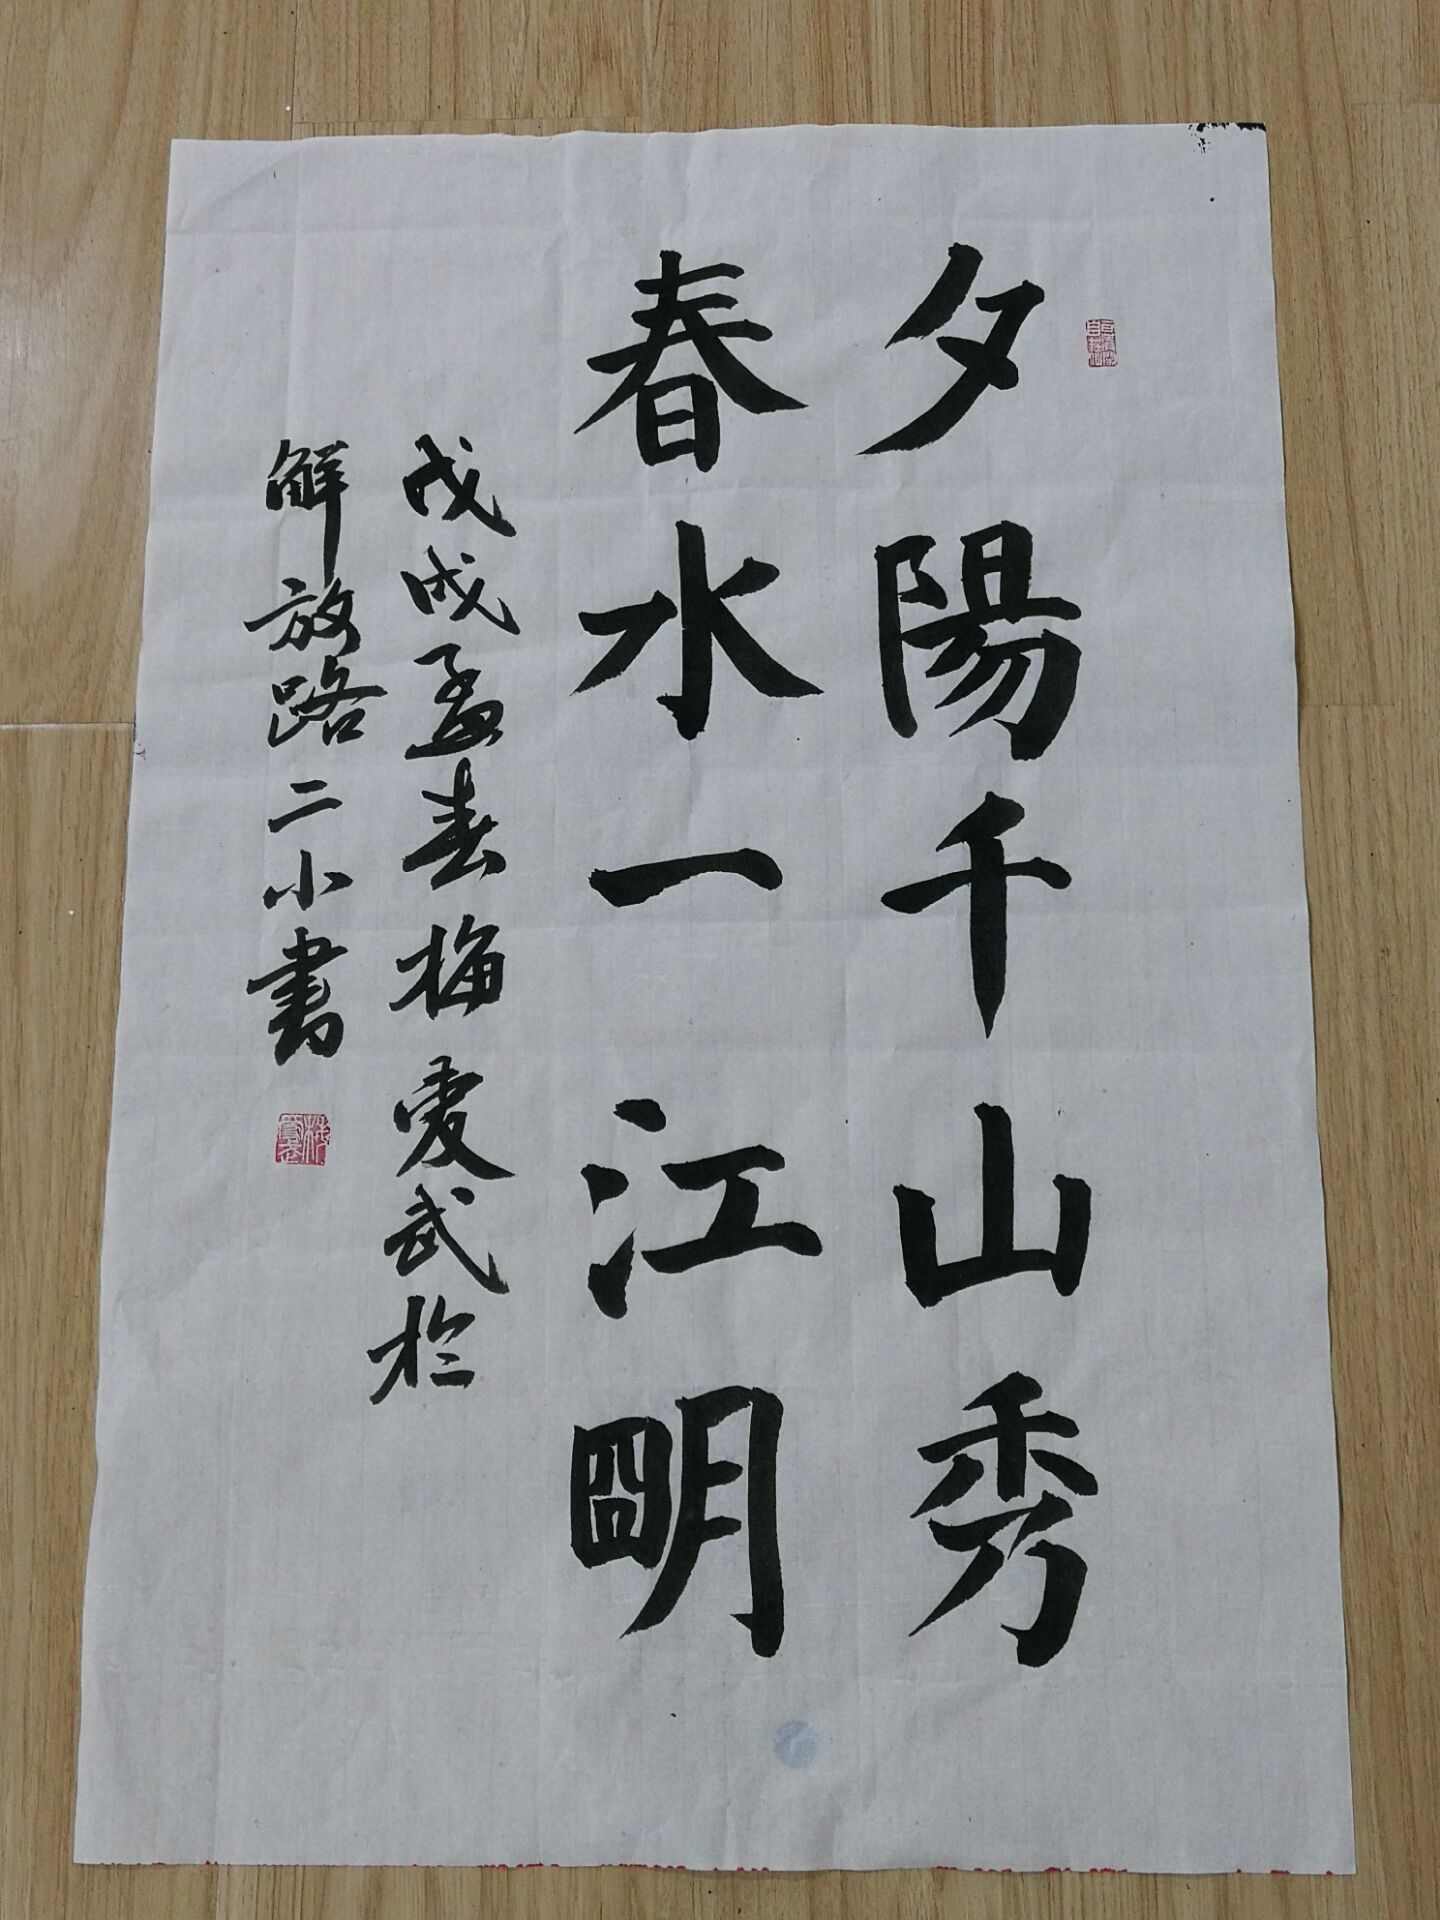 夕陽千山秀
春水一江明
戊戌孟春梅愛武於
解放路二小書